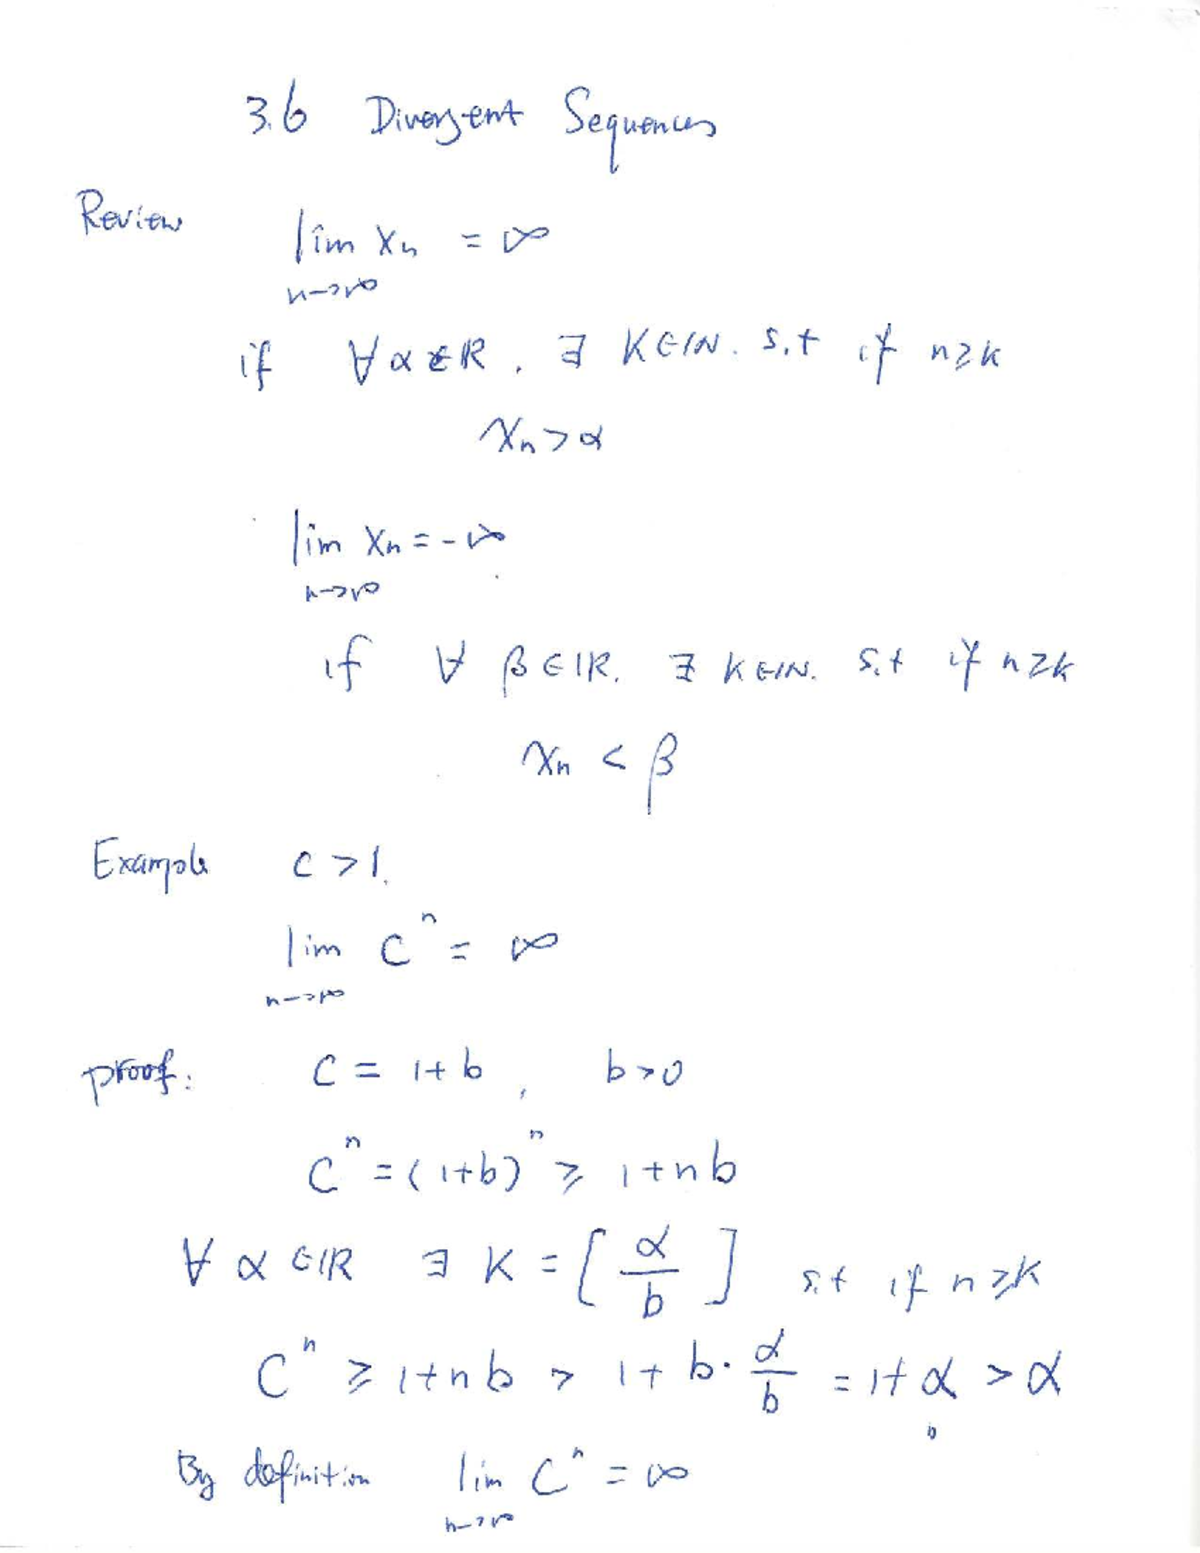 3.6 Divergent Sequences
Review
lim xₙ = ∞
n→∞
if ∀ α ∈ ℝ, ∃ K ∈ ℕ. s.t if n ≥ k
xₙ > α
lim xₙ = -∞
n→∞
if ∀ β ∈ ℝ. ∃ K ∈ ℕ. s.t if n ≥ k
xₙ < β
Example c > 1.
lim Cⁿ = ∞
n→∞
proof: C = 1+b, b>0
Cⁿ = (1+b)ⁿ ≥ 1+nb
∀ α ∈ ℝ ∃ K = [α/b] s.t if n ≥ K
Cⁿ ≥ 1+nb > 1+b·α/b = 1+α > α
By definition lim Cⁿ = ∞
n→∞